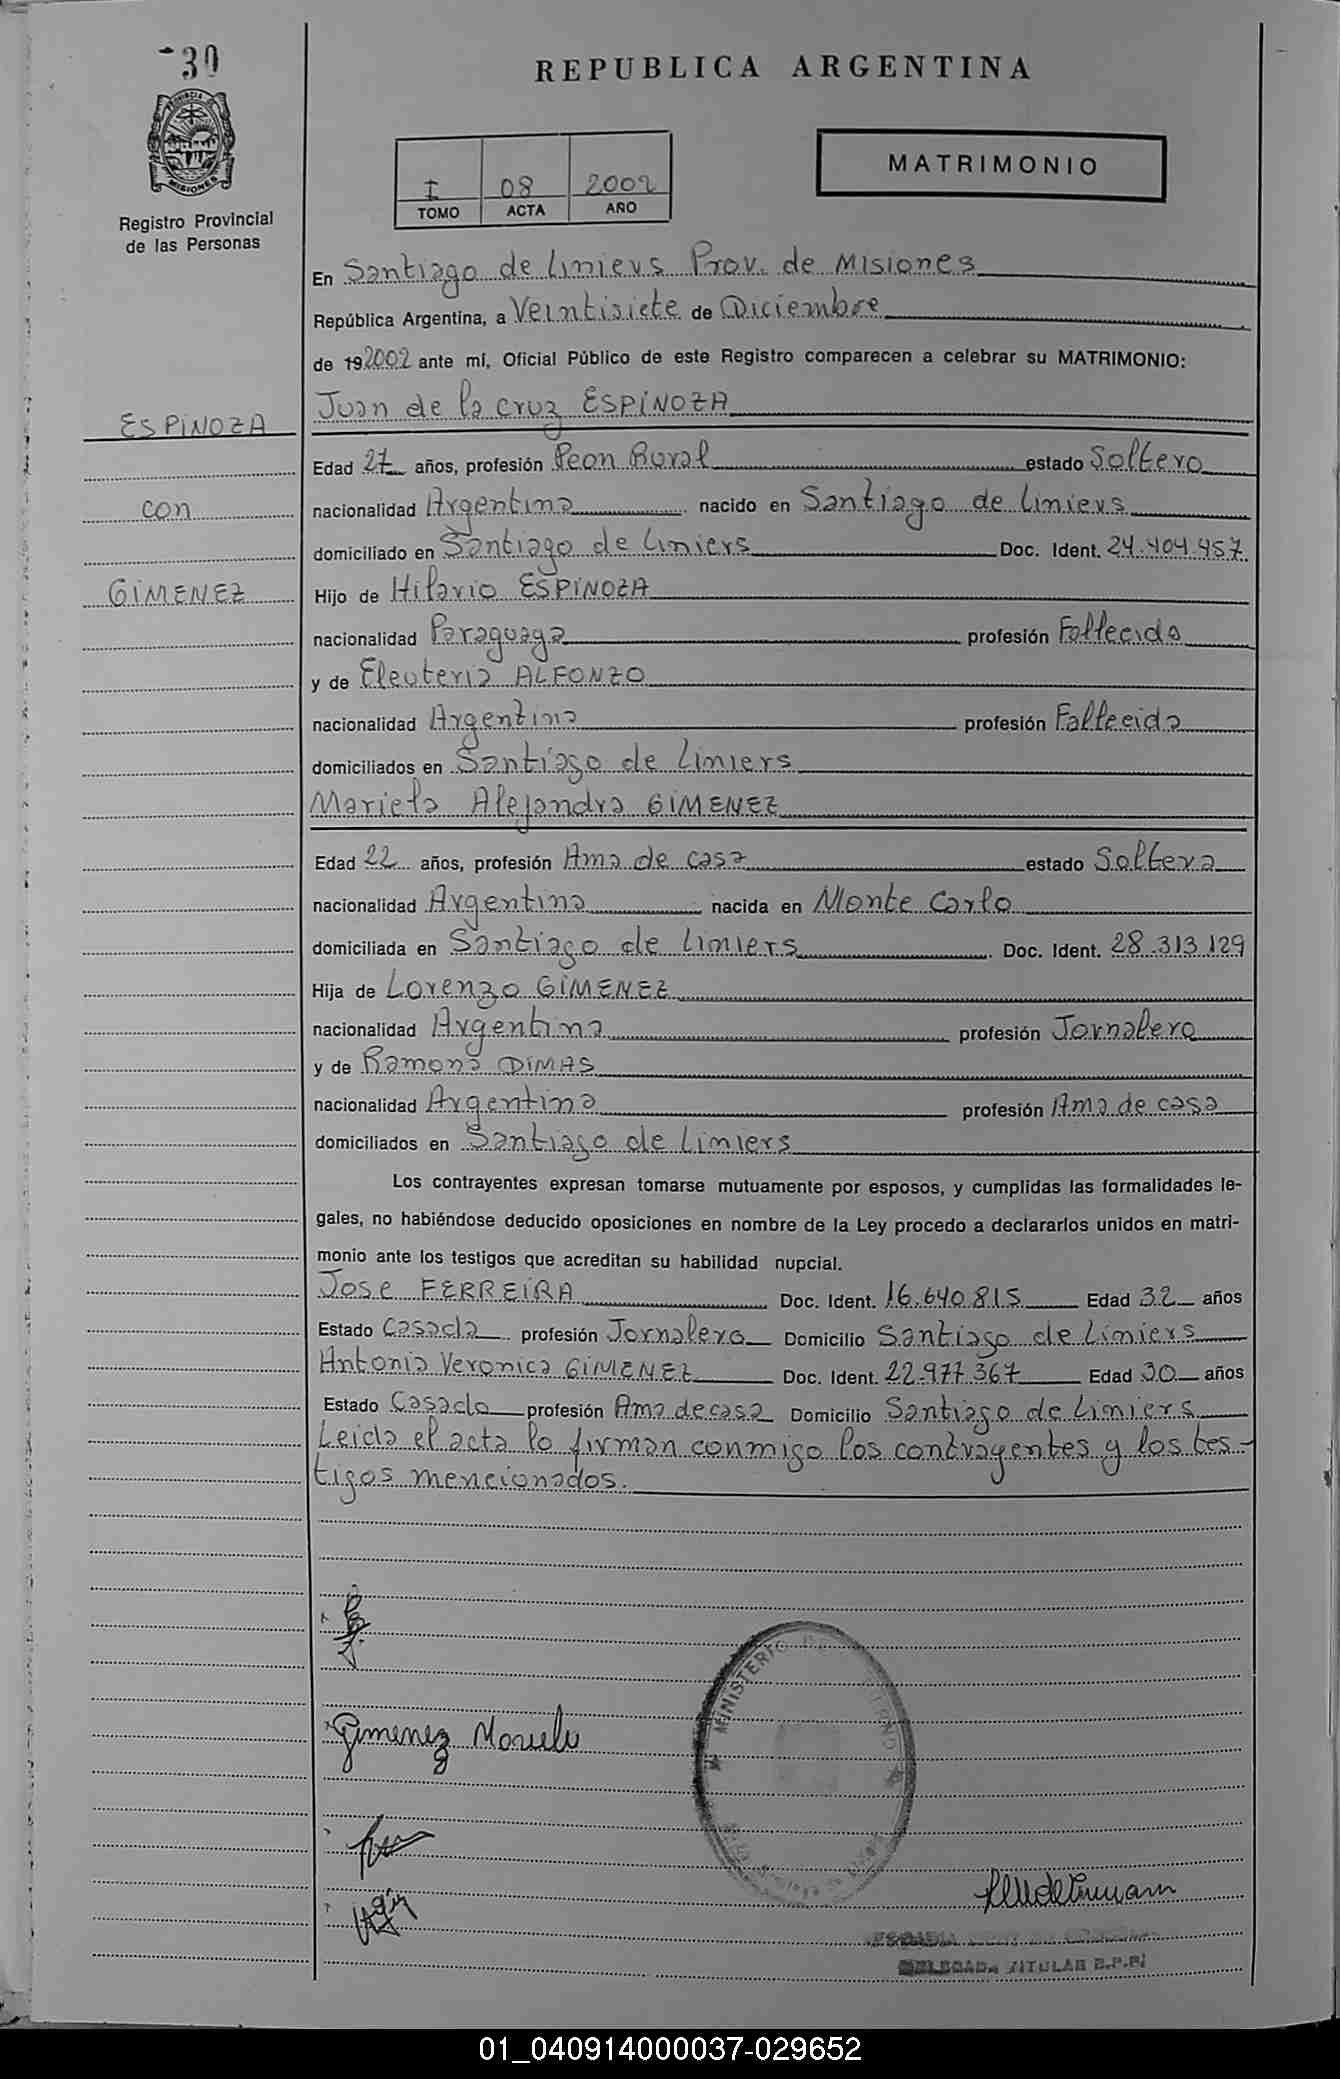 30
REPUBLICA ARGENTINA
MATRIMONIO
I 08 2002
TOMO ACTA AÑO
PROVINCIA DE MISIONES
Registro Provincial
de las Personas
En Santiago de Liniers Prov. de Misiones
República Argentina, a Veintisiete de Diciembre
de 192002 ante mí, Oficial Público de este Registro comparecen a celebrar su MATRIMONIO:
Juan de la cruz ESPINOZA
ESPINOZA
Edad 27 años, profesión Peon Rural estado Soltero
con
nacionalidad Argentina nacido en Santiago de Liniers
domiciliado en Santiago de Liniers Doc. Ident. 24.404.457
GIMENEZ
Hijo de Hilario ESPINOZA
nacionalidad Paraguaya profesión Fallecido
y de Eleuteria ALFONZO
nacionalidad Argentina profesión Fallecida
domiciliados en Santiago de Liniers
Mariela Alejandra GIMENEZ
Edad 22 años, profesión Ama de casa estado Soltera
nacionalidad Argentina nacida en Monte Carlo
domiciliada en Santiago de Liniers Doc. Ident. 28.313.129
Hija de Lorenzo GIMENEZ
nacionalidad Argentina profesión Jornalero
y de Ramona DIMAS
nacionalidad Argentina profesión Ama de casa
domiciliados en Santiago de Liniers
Los contrayentes expresan tomarse mutuamente por esposos, y cumplidas las formalidades le-
gales, no habiéndose deducido oposiciones en nombre de la Ley procedo a declararlos unidos en matri-
monio ante los testigos que acreditan su habilidad nupcial.
Jose FERREIRA Doc. Ident. 16.640.815 Edad 32 años
Estado Casado profesión Jornalero Domicilio Santiago de Liniers
Antonia Veronica GIMENEZ Doc. Ident. 22.977.367 Edad 30 años
Estado Casada profesión Ama de casa Domicilio Santiago de Liniers
Leida el acta lo firman conmigo los contrayentes y los tes-
tigos mencionados.
Gimenez Mariela
MINISTERIO DE
DELEGADA TITULAR R.P.P.
01_040914000037-029652